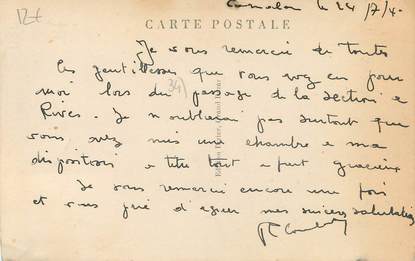 12€
le 24/7/40
CARTE POSTALE
Je vous remercie de toutes
les gentillesses que vous avez eu pour
moi lors du passage de la section a
Rives. Je n'oublierai pas surtout que
vous avez mis une chambre a ma
disposition a titre tout a fait gracieux
Je vous remercie encore une fois
et vous prie d'agréer mes sincères salutations